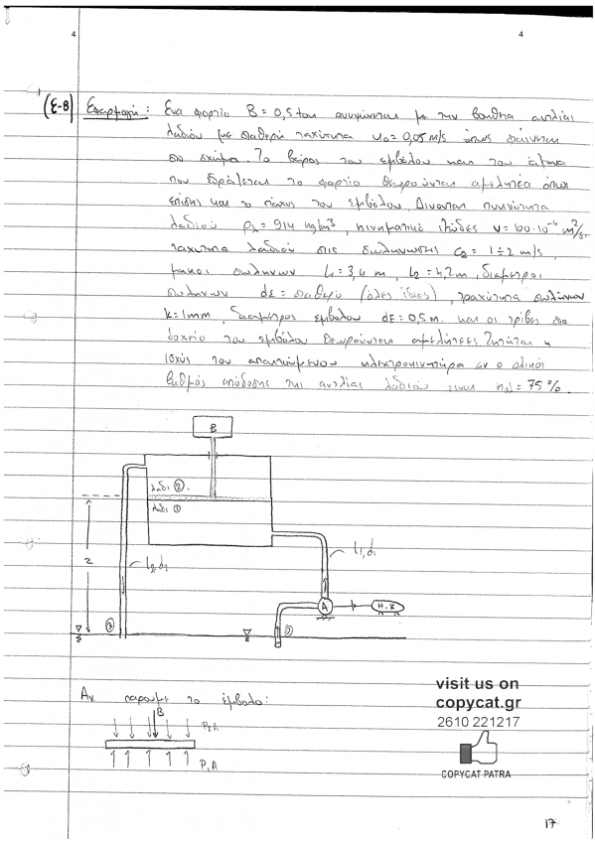 4 4
(Ε-8) Εφαρμογή: Ένα φορτίο Β = 0,5 ton ανυψώνεται με την βοήθεια αντλίας
λαδιού με σταθερή ταχύτητα υ₀ = 0,05 m/s όπως φαίνεται
στο σχήμα. Το βάρος του εμβόλου και του άξονα
που εδράζεται το φορτίο θεωρούνται αμελητέα όπως
επίσης και το πάχος του εμβόλου. Δίνονται πυκνότητα
λαδιού ρλ = 914 kg/m³, κινηματικό ιξώδες ν = 100·10⁻⁶ m²/s
ταχύτητα λαδιού στις σωληνώσεις c₂ = 1÷2 m/s,
μήκος σωλήνων L₁ = 3,4 m, L₂ = 4,2 m, διάμετροι
σωλήνων dΣ = σταθερό (όλες ίδιες), τραχύτητα σωλήνων
k = 1mm, διάμετρος εμβόλου dΕ = 0,5 m. και οι τριβές στο
δοχείο του εμβόλου θεωρούνται αμελητέες. Ζητείται η
ισχύς του απαιτούμενου ηλεκτροκινητήρα αν ο ολικός
βαθμός απόδοσης της αντλίας λαδιού είναι = 75%.
Β
λάδι ②
λάδι ①
z
L₂,d₁
L₁,d₁
Α
Η.Κ
③
①
Αν πάρουμε το έμβολο:
Β
P₂A
P₁A
visit us on
copycat.gr
2610 221217
COPYCAT PATRA
17